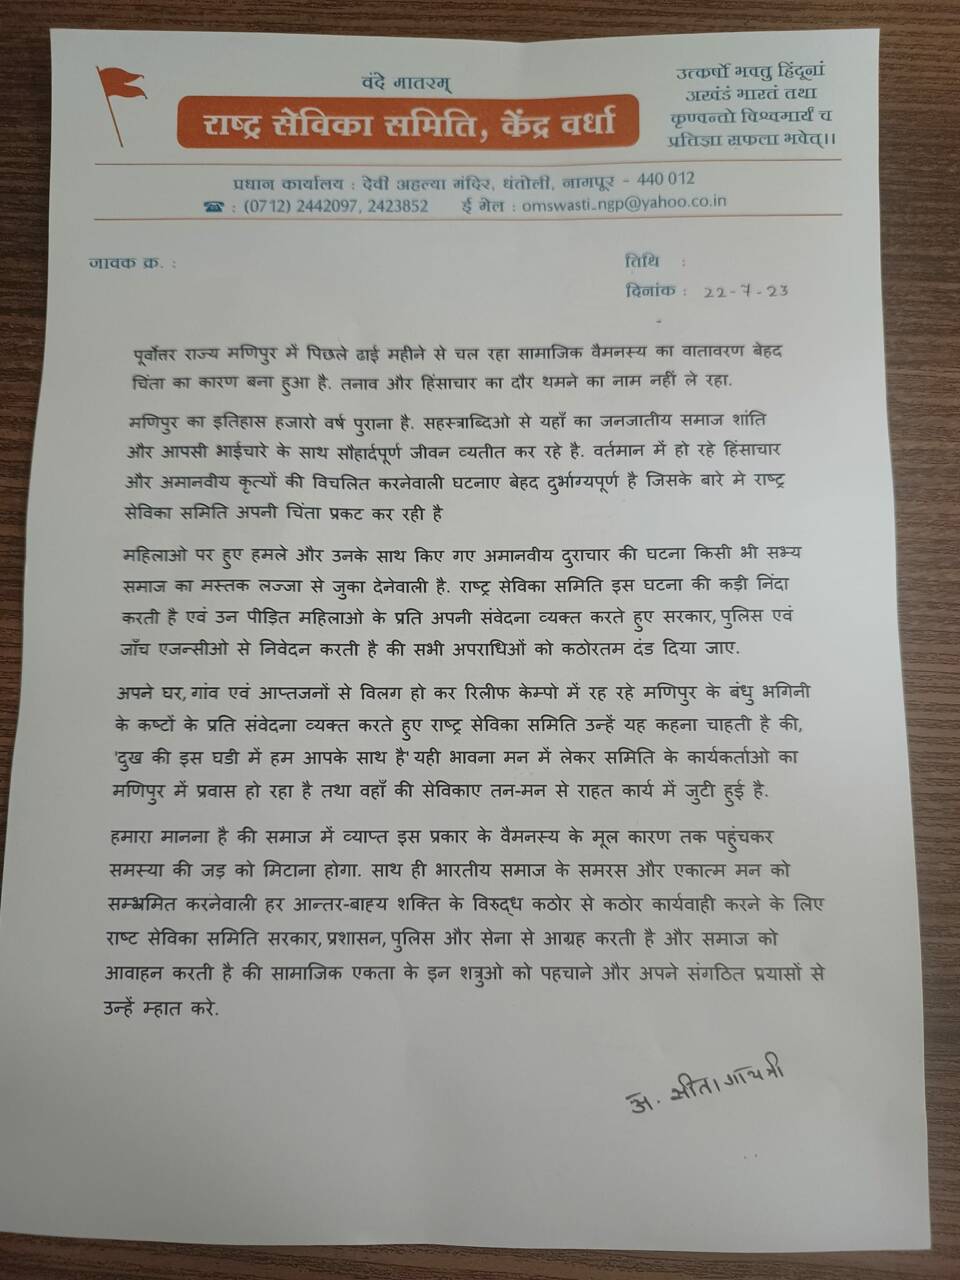 वंदे मातरम्
राष्ट्र सेविका समिति, केंद्र वर्धा
उत्कर्षो भवतु हिंदूनां
अखंडं भारतं तथा
कृण्वन्तो विश्वमार्यं च
प्रतिज्ञा सफला भवेत्।।
प्रधान कार्यालय : देवी अहल्या मंदिर, धंतोली, नागपूर - 440 012
☎ : (0712) 2442097, 2423852 ई मेल : omswasti_ngp@yahoo.co.in
जावक क्र. :
तिथि :
दिनांक : 22-7-23
पूर्वोत्तर राज्य मणिपुर में पिछले ढाई महीने से चल रहा सामाजिक वैमनस्य का वातावरण बेहद
चिंता का कारण बना हुआ है. तनाव और हिंसाचार का दौर थमने का नाम नहीं ले रहा.
मणिपुर का इतिहास हजारो वर्ष पुराना है. सहस्त्राब्दिओ से यहाँ का जनजातीय समाज शांति
और आपसी भाईचारे के साथ सौहार्दपूर्ण जीवन व्यतीत कर रहे है. वर्तमान में हो रहे हिंसाचार
और अमानवीय कृत्यों की विचलित करनेवाली घटनाए बेहद दुर्भाग्यपूर्ण है जिसके बारे मे राष्ट्र
सेविका समिति अपनी चिंता प्रकट कर रही है
महिलाओ पर हुए हमले और उनके साथ किए गए अमानवीय दुराचार की घटना किसी भी सभ्य
समाज का मस्तक लज्जा से जुका देनेवाली है. राष्ट्र सेविका समिति इस घटना की कड़ी निंदा
करती है एवं उन पीड़ित महिलाओ के प्रति अपनी संवेदना व्यक्त करते हुए सरकार, पुलिस एवं
जाँच एजन्सीओ से निवेदन करती है की सभी अपराधिओं को कठोरतम दंड दिया जाए.
अपने घर, गांव एवं आप्तजनों से विलग हो कर रिलीफ केम्पो में रह रहे मणिपुर के बंधु भगिनी
के कष्टों के प्रति संवेदना व्यक्त करते हुए राष्ट्र सेविका समिति उन्हें यह कहना चाहती है की,
'दुख की इस घडी में हम आपके साथ है' यही भावना मन में लेकर समिति के कार्यकर्ताओ का
मणिपुर में प्रवास हो रहा है तथा वहाँ की सेविकाए तन-मन से राहत कार्य में जुटी हुई है.
हमारा मानना है की समाज में व्याप्त इस प्रकार के वैमनस्य के मूल कारण तक पहुंचकर
समस्या की जड़ को मिटाना होगा. साथ ही भारतीय समाज के समरस और एकात्म मन को
सम्भ्रमित करनेवाली हर आन्तर-बाह्य शक्ति के विरुद्ध कठोर से कठोर कार्यवाही करने के लिए
राष्ट सेविका समिति सरकार, प्रशासन, पुलिस और सेना से आग्रह करती है और समाज को
आवाहन करती है की सामाजिक एकता के इन शत्रुओ को पहचाने और अपने संगठित प्रयासों से
उन्हें म्हात करे.
अ. सीता गायत्री